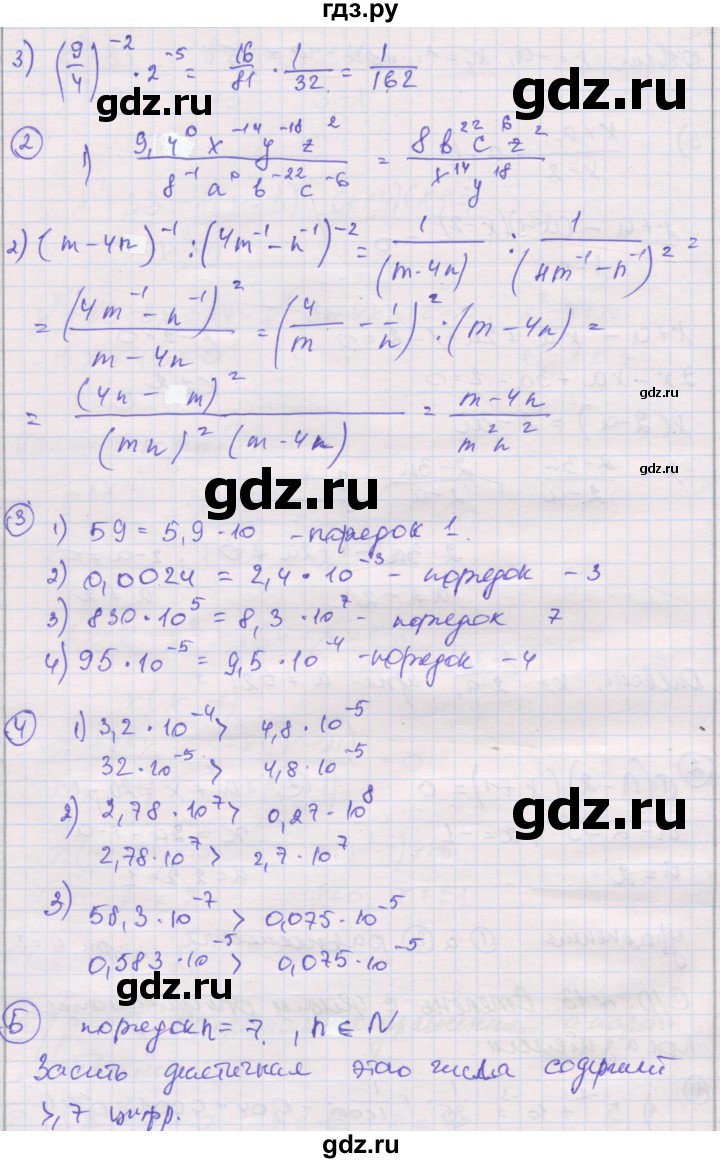 гдз.ру
3) (9/4)^-2 · 2^-5 = 16/81 · 1/32 = 1/162
gdz.ru
gdz.ru
② 1) 9,4^0 x^-14 y^-18 z^2 / 8^-1 a^0 b^-22 c^-6 = 8 b^22 c^6 z^2 / x^14 y^18
2) (m-4n)^-1 : (4m^-1 - n^-1)^-2 = 1/(m-4n) : 1/(4m^-1 - n^-1)^2 =
= (4m^-1 - n^-1)^2 / m-4n = (4/m - 1/n)^2 : (m-4n) =
gdz.ru
= (4n - m)^2 / (mn)^2 (m-4n) = m-4n / m^2 n^2
gdz.ru
gdz.ru
③ 1) 59 = 5,9 · 10 - порядок 1.
2) 0,0024 = 2,4 · 10^-3 - порядок -3
3) 830 · 10^5 = 8,3 · 10^7 - порядок 7
4) 95 · 10^-5 = 9,5 · 10^-4 - порядок -4
gdz.ru
④ 1) 3,2 · 10^-4 > 4,8 · 10^-5
32 · 10^-5 > 4,8 · 10^-5
gdz.ru
2) 2,78 · 10^7 > 0,27 · 10^8
2,78 · 10^7 > 2,7 · 10^7
3) 58,3 · 10^-7 > 0,075 · 10^-5
0,583 · 10^-5 > 0,075 · 10^-5
gdz.ru
gdz.ru
⑤ порядок n = 7, n ∈ N
этого числа содержит
>, 7 цифр.
gdz.ru